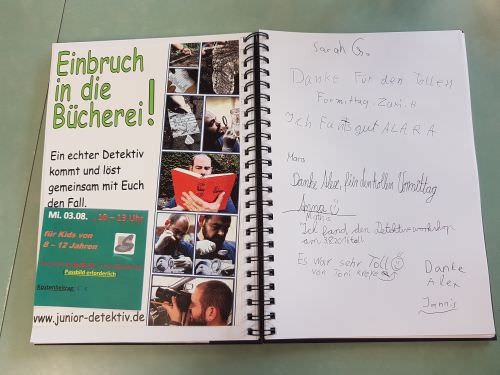 Einbruch
in die
Bücherei!
Ein echter Detektiv
kommt und löst
gemeinsam mit Euch
den Fall.
Mi. 03.08. 10 – 13 Uhr
für Kids von
8 – 12 Jahren
Passbild erforderlich
Kostenbeitrag:
www.junior-detektiv.de
Sarah G.
Danke Für den Tollen
Formittag.
Ich Fants gut ALARA
Danke Alex, für den tollen Vormittag
Anna
Ich fand den Detektivworkshop
am toll
Es war sehr Toll
von Toni
Danke
Alex
Jannis